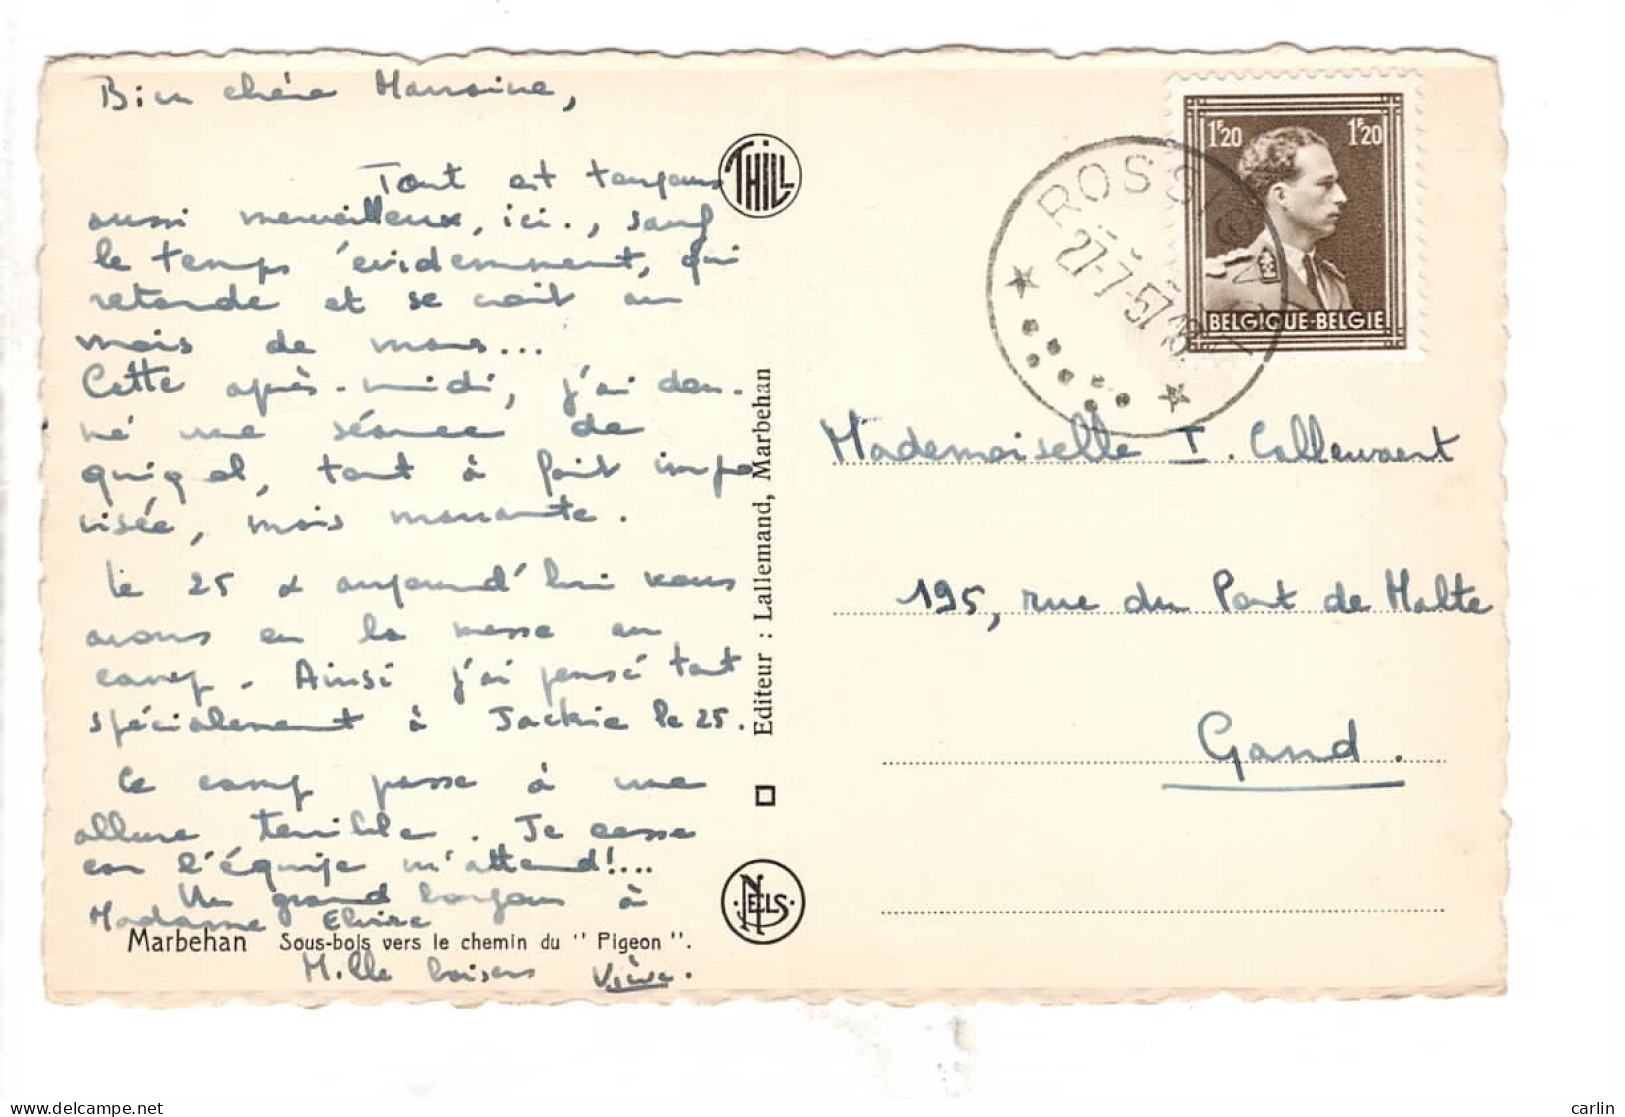 Bien chère Marraine,
Tout est toujours
aussi merveilleux, ici., sauf
le temps évidemment, qui
retarde et se croit au
mois de mars...
Cette après-midi, j'ai don-
né une séance de
guignol, tout à fait impro
visée, mais marrante.
Le 25 & aujourd'hui nous
avons eu la messe au
camp. Ainsi j'ai pensé tout
spécialement à Jackie le 25.
Le camp passe à une
allure terrible. Je cesse
car l'équipe m'attend!...
Un grand bonjour à
Madame Elvire
Marbehan Sous-bois vers le chemin du " Pigeon ".
Mille baisers Viève.
THILL
Editeur : Lallemand, Marbehan
NELS
ROSSIGNOL
27-7-57 18
1F20 1F20
BELGIQUE-BELGIE
Mademoiselle I. Callewaert
195, rue du Pont de Malte
Gand.
carlin